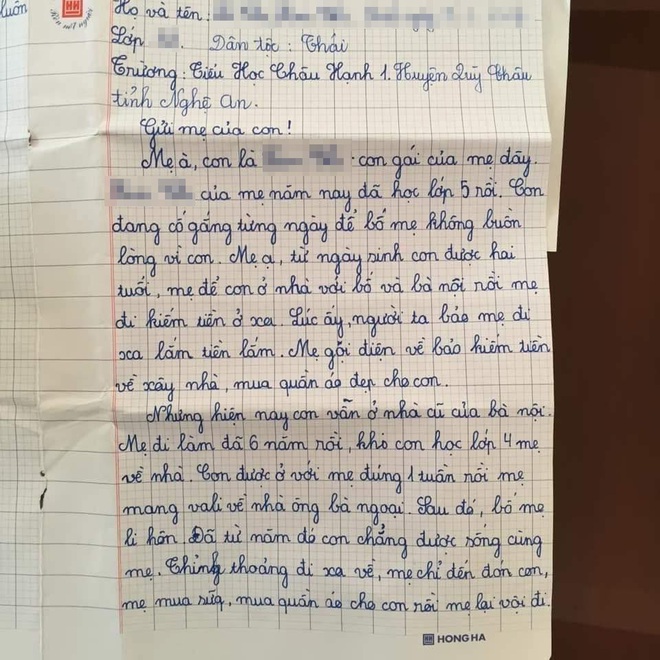 luôn
HH
Nét một người
Họ và tên:
Lớp Dân tộc: Thái
Trường: Tiểu Học Châu Hạnh 1. Huyện Quỳ Châu
tỉnh Nghệ An.
Gửi mẹ của con!
Mẹ à, con là con gái của mẹ đây.
của mẹ năm nay đã học lớp 5 rồi. Con
đang cố gắng từng ngày để bố mẹ không buồn
lòng vì con. Mẹ ạ, từ ngày sinh con được hai
tuổi, mẹ để con ở nhà với bố và bà nội rồi mẹ
đi kiếm tiền ở xa. Lúc ấy, người ta bảo mẹ đi
xa lắm tiền lắm. Mẹ gọi điện về bảo kiếm tiền
về xây nhà, mua quần áo đẹp cho con.
Nhưng hiện nay con vẫn ở nhà cũ của bà nội.
Mẹ đi làm đã 6 năm rồi, khi con học lớp 4 mẹ
về nhà. Con được ở với mẹ đúng 1 tuần rồi mẹ
mang vali về nhà ông bà ngoại. Sau đó, bố mẹ
li hôn. Đã từ năm đó con chẳng được sống cùng
mẹ. Thỉnh thoảng đi xa về, mẹ chỉ đến đón con,
mẹ mua sữa, mua quần áo cho con rồi mẹ lại vội đi.
HH HONG HA